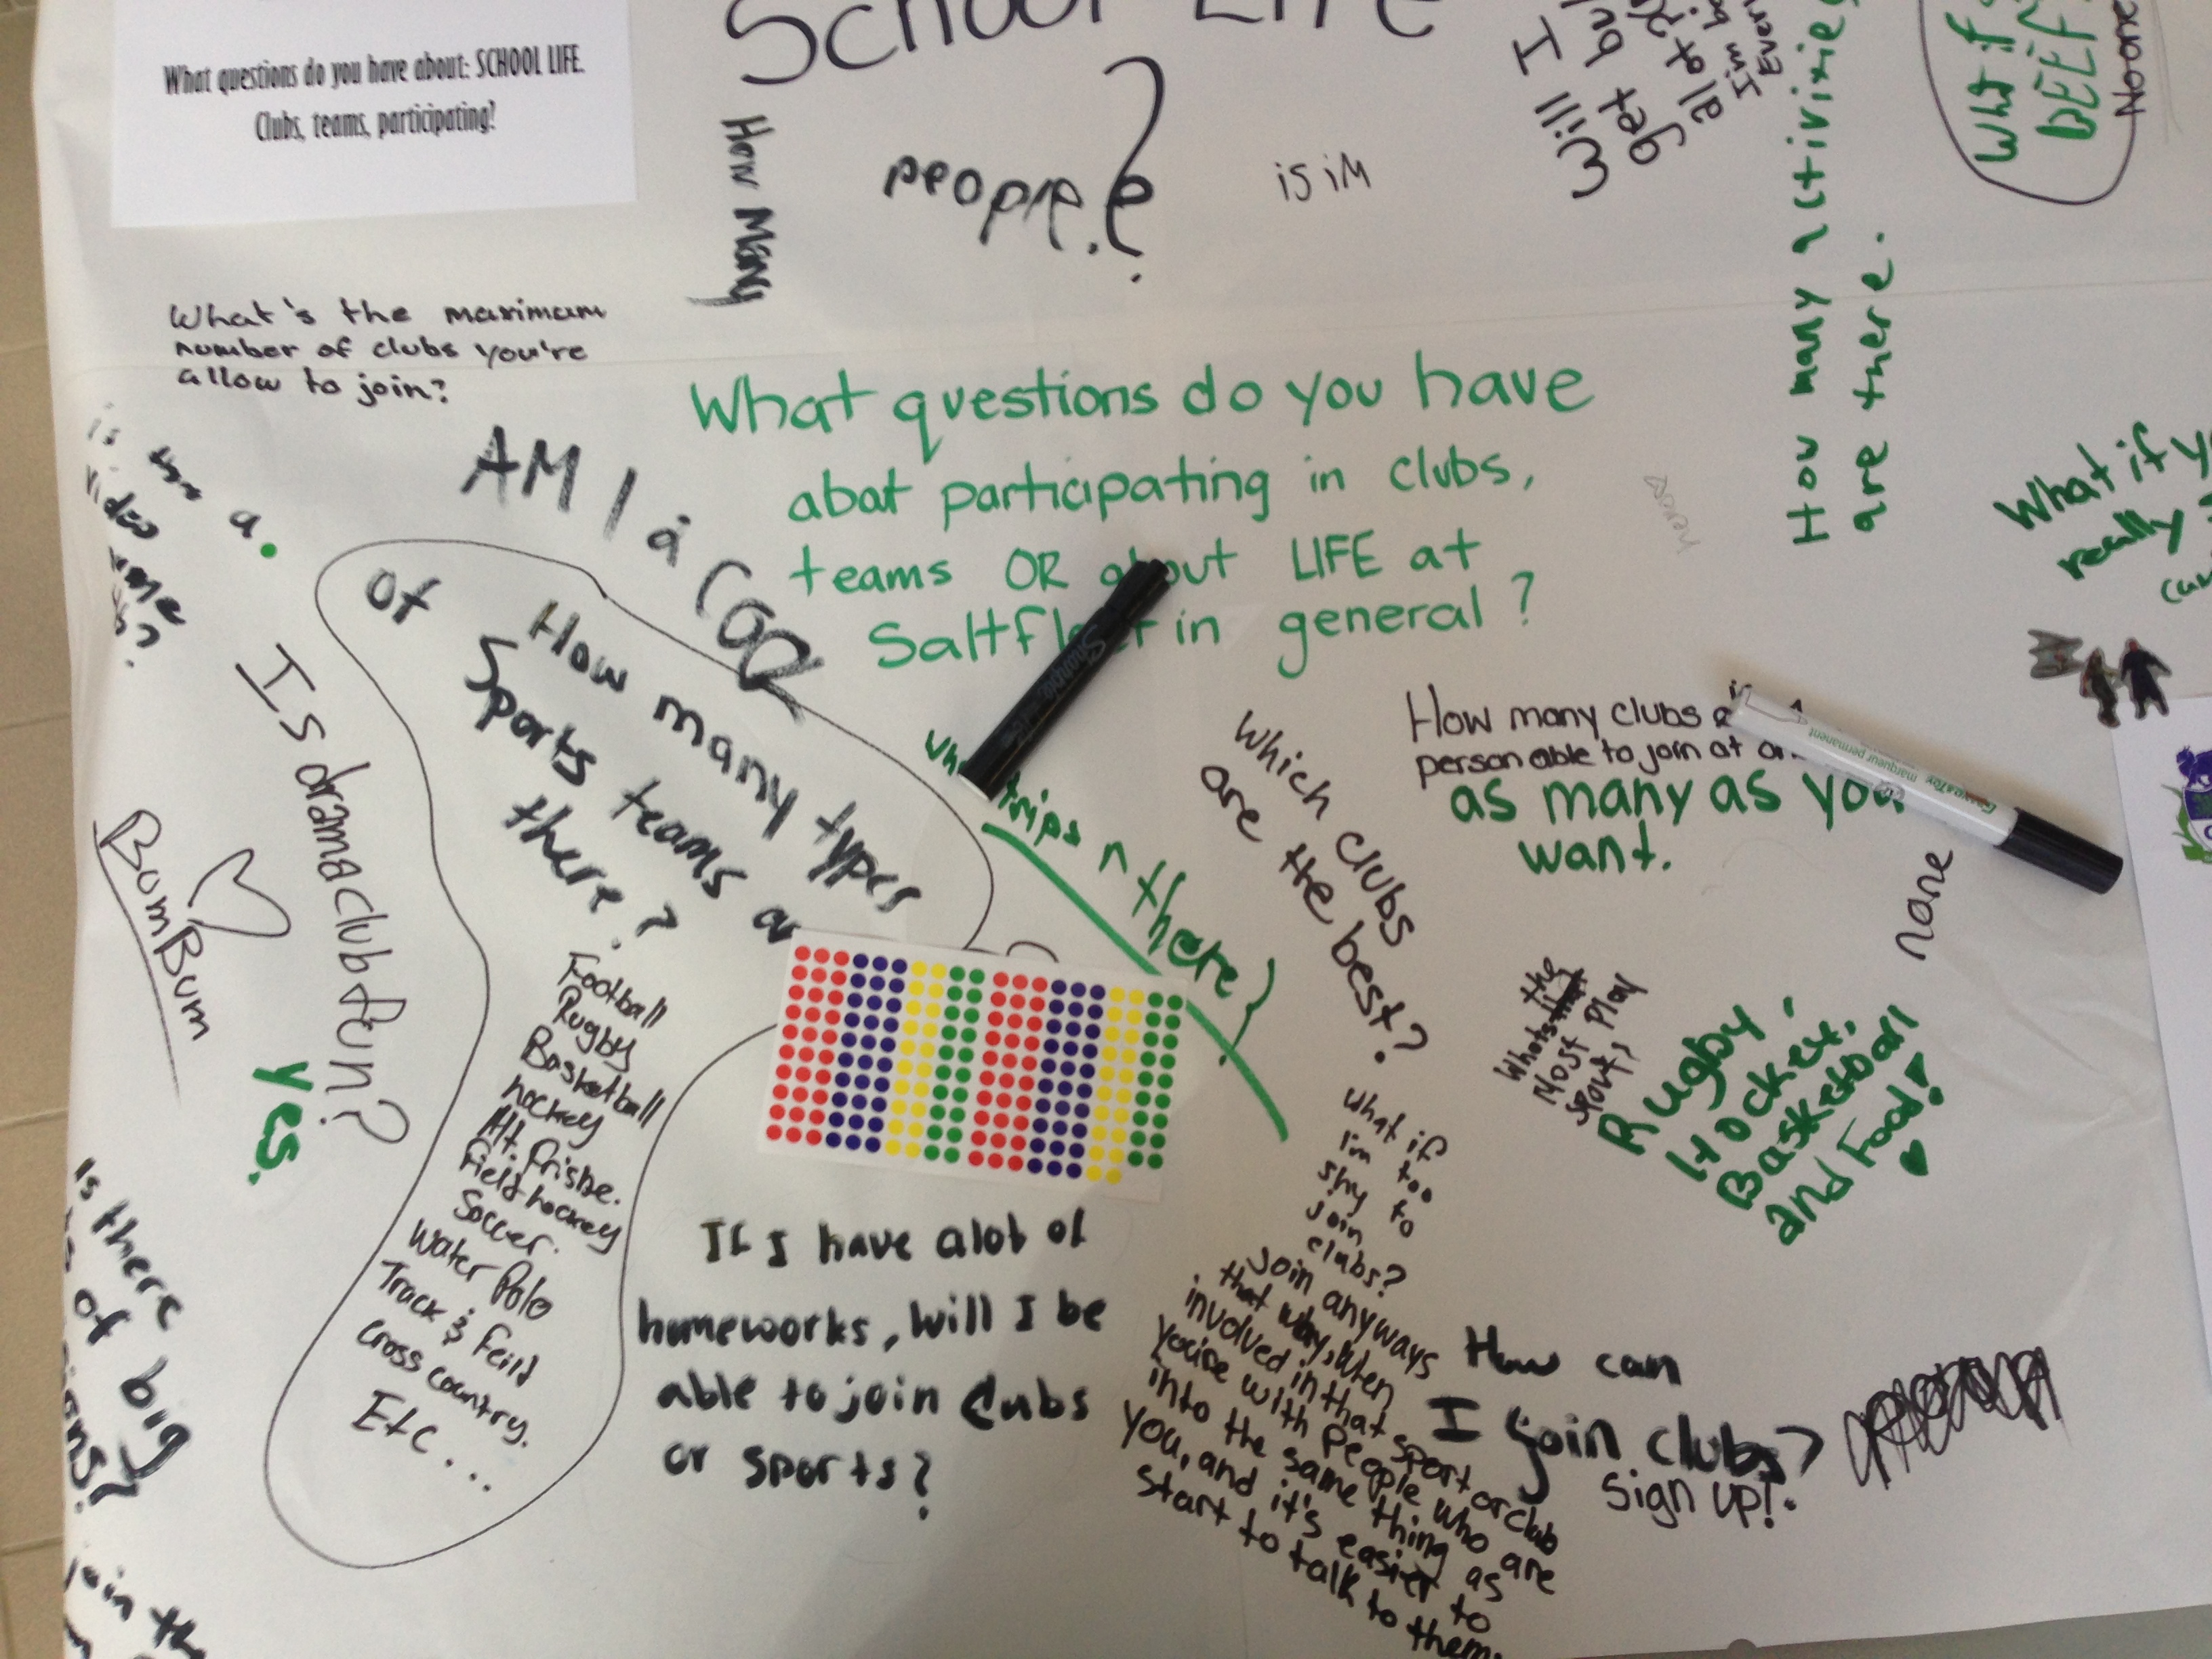 What questions do you have about: SCHOOL LIFE.
Clubs, teams, participating!
School Life
How Many
people.?
is iM
Will I
get bu
alot
I'm bi
Even
How many activixies
are there.
What if
BEEF
What's the maximam
number of clubs you're
allow to join?
What questions do you have
abat participating in clubs,
teams OR about LIFE at
Saltfleet in general?
AM I a COOL
is
a.
How many types
of Sports teams a
there?
Football
Rugby
Basketball
hockey
Alt. frisbe.
Field hockey
Soccer.
Water Polo
Track & Feild
cross country.
Etc...
Is drama club fun?
yes.
BumBum
trips n there?
Which clubs
are the best?
How many clubs
person able to join at
as many as you
want.
What if y
really
none
Whats the
Most Play
spouts
Rugby,
Hockey,
Basketball
and Food!
what if
I'm too
shy to
join
clubs?
Join anyways
that way, when
involved in that sport or club
you're with people who are
into the same thing as
you, and it's easier to
start to talk to them
How can
I join clubs?
Sign up!
If I have alot of
homeworks, will I be
able to join clubs
or sports?
Is there
of big
join th